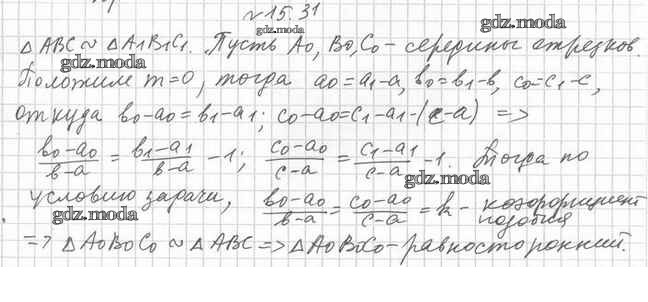 №15.31
gdz.moda
△ABC ~ △A1B1C1. Пусть A0, B0, C0 – середины отрезков.
gdz.moda
Положим m=0, тогда a0=a1-a, b0=b1-b, c0=c1-c,
откуда b0-a0=b1-a1; c0-a0=c1-a1-(c-a) =>
b0-a0/b-a = b1-a1/b-a -1; c0-a0/c-a = c1-a1/c-a -1. Тогда по
gdz.moda
условию задачи, b0-a0/b-a = c0-a0/c-a = k – коэффициент
подобия
gdz.moda
=> △A0B0C0 ~ △ABC => △A0B0C0 – равносторонний.